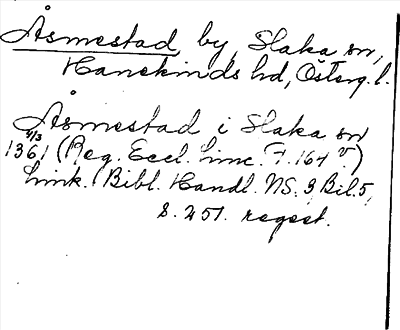 Åsmestad by, Slaka sn,
Hanekinds hd, Österg.l.
Åsmestad i Slaka sn
4/3
1361 (Reg. Eccl. Linc. F. 164 v.)
Link. (Bibl. Handl. NS. 3, Bil. 5,
s. 251. regest.